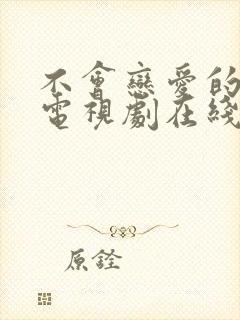 不會戀愛的
電視劇在綫
原銓